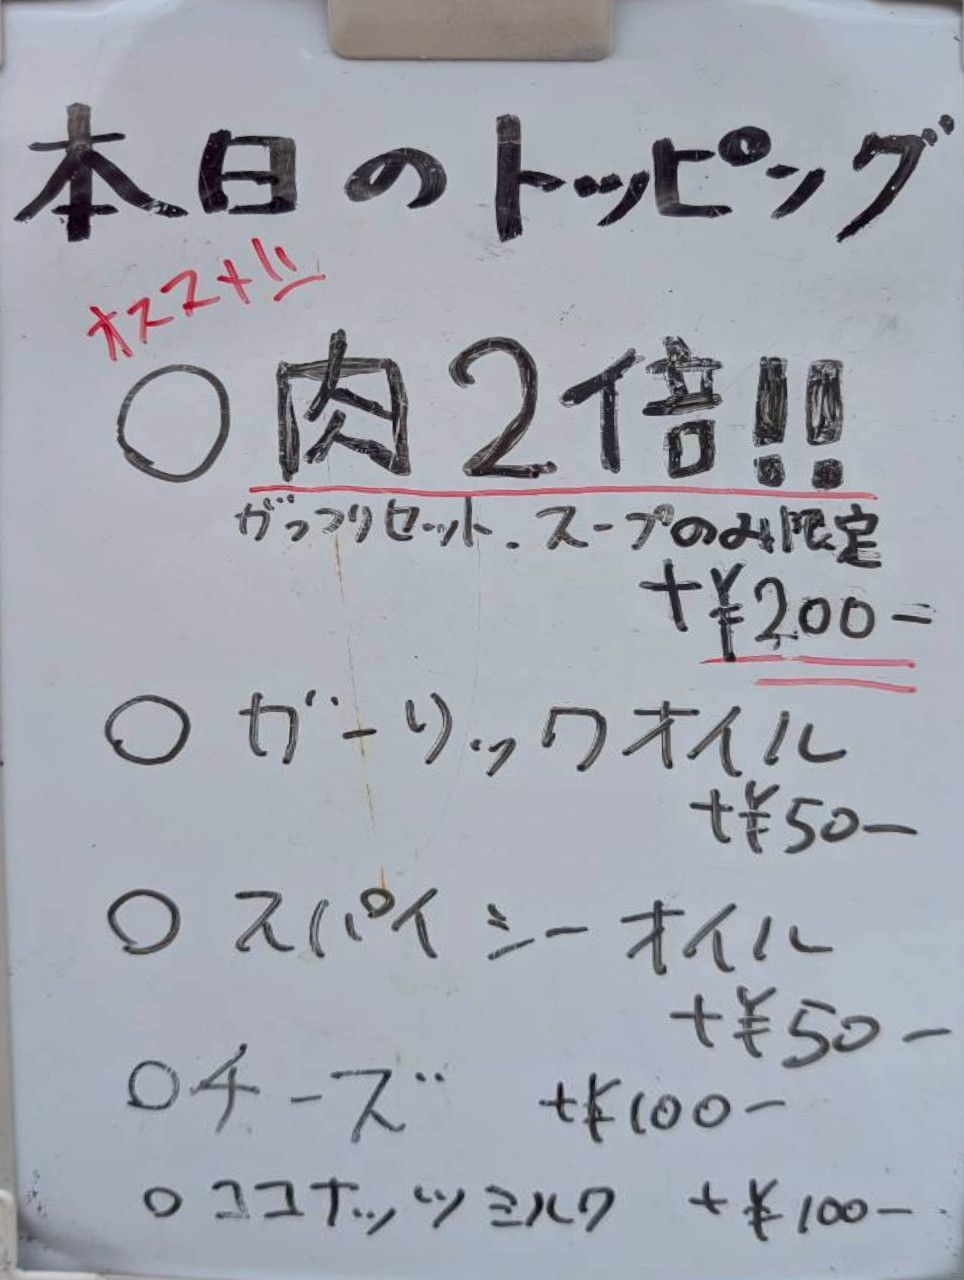 本日のトッピング
オススメ!!
○ 肉2倍!!
がっつりセット、スープのみ限定
+¥200-
○ ガーリックオイル
+¥50-
○ スパイシーオイル
+¥50-
○チーズ +¥100-
○ココナッツミルク +¥100-